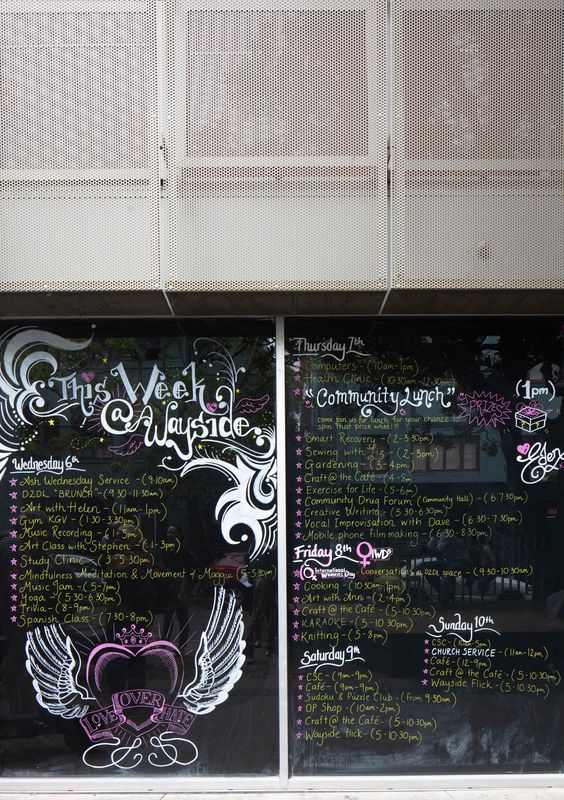 This Week
@ Wayside
Wednesday 6th
Ash Wednesday Service - (9:10am)
D2DL "BRUNCH" - (9:30-11:30am)
Art with Helen - (11am-1pm)
Gym KGV - (1:30-3:30pm)
Music Recording - (1-5pm)
Art Class with Stephen - (1-3pm)
Study Clinic - (3-5:30pm)
Mindfulness Meditation & Movement y Maggie (5-5:30pm)
Music Jam - (5-7pm)
Yoga - (5:30-6:30pm)
Trivia - (8-9pm)
Spanish Class - (7:30-8pm)
LOVE OVER HATE
Thursday 7th
Computers - (10am-1pm)
Health Clinic - (10:30am-12:30pm)
"Community Lunch"
(1pm)
come join us for lunch for your chance to
spin that prize wheel
PRIZES
Smart Recovery - (2-3:30pm)
Sewing with Liz - (2-3pm)
Gardening - (3-4pm)
Craft @ the Café - (4-8pm)
Exercise for Life - (5-6pm)
Community Drug Forum (Community Hall) - (6-7:30pm)
Creative Writing - (5:30-6:30pm)
Vocal Improvisation with Dave - (6:30-7:30pm)
Mobile phone film making - (6:30-8:30pm)
Friday 8th IWD
International Womens Day Conversations in D2DL space - (9:30-10:30am)
Cooking - (10:30am-1pm)
Art with Ann - (2-4pm)
Craft @ the Café - (5-10:30pm)
KARAOKE - (5-10:30pm)
Knitting - (5-8pm)
Saturday 9th
CSC - (9am-9pm)
Café - (9am-9pm)
Sudoku & Puzzle Club - (From 9:30am)
OP Shop - (10am-2pm)
Craft @ the Café - (5-10:30pm)
Wayside flick - (5-10:30pm)
Sunday 10th
CSC -
CHURCH SERVICE - (11am-12pm)
Café - (12-9pm)
Craft @ the Café - (5-10:30pm)
Wayside Flick - (5-10:30pm)